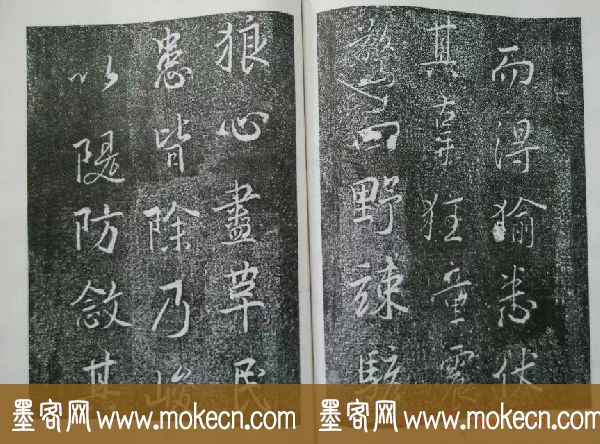 而得悉伏
其辜狂童震
驚四野竦駭
狼心盡革民
患皆除乃峻
以隄防斂其
墨客网 www.mokecn.com 墨客网 www.mokecn.com